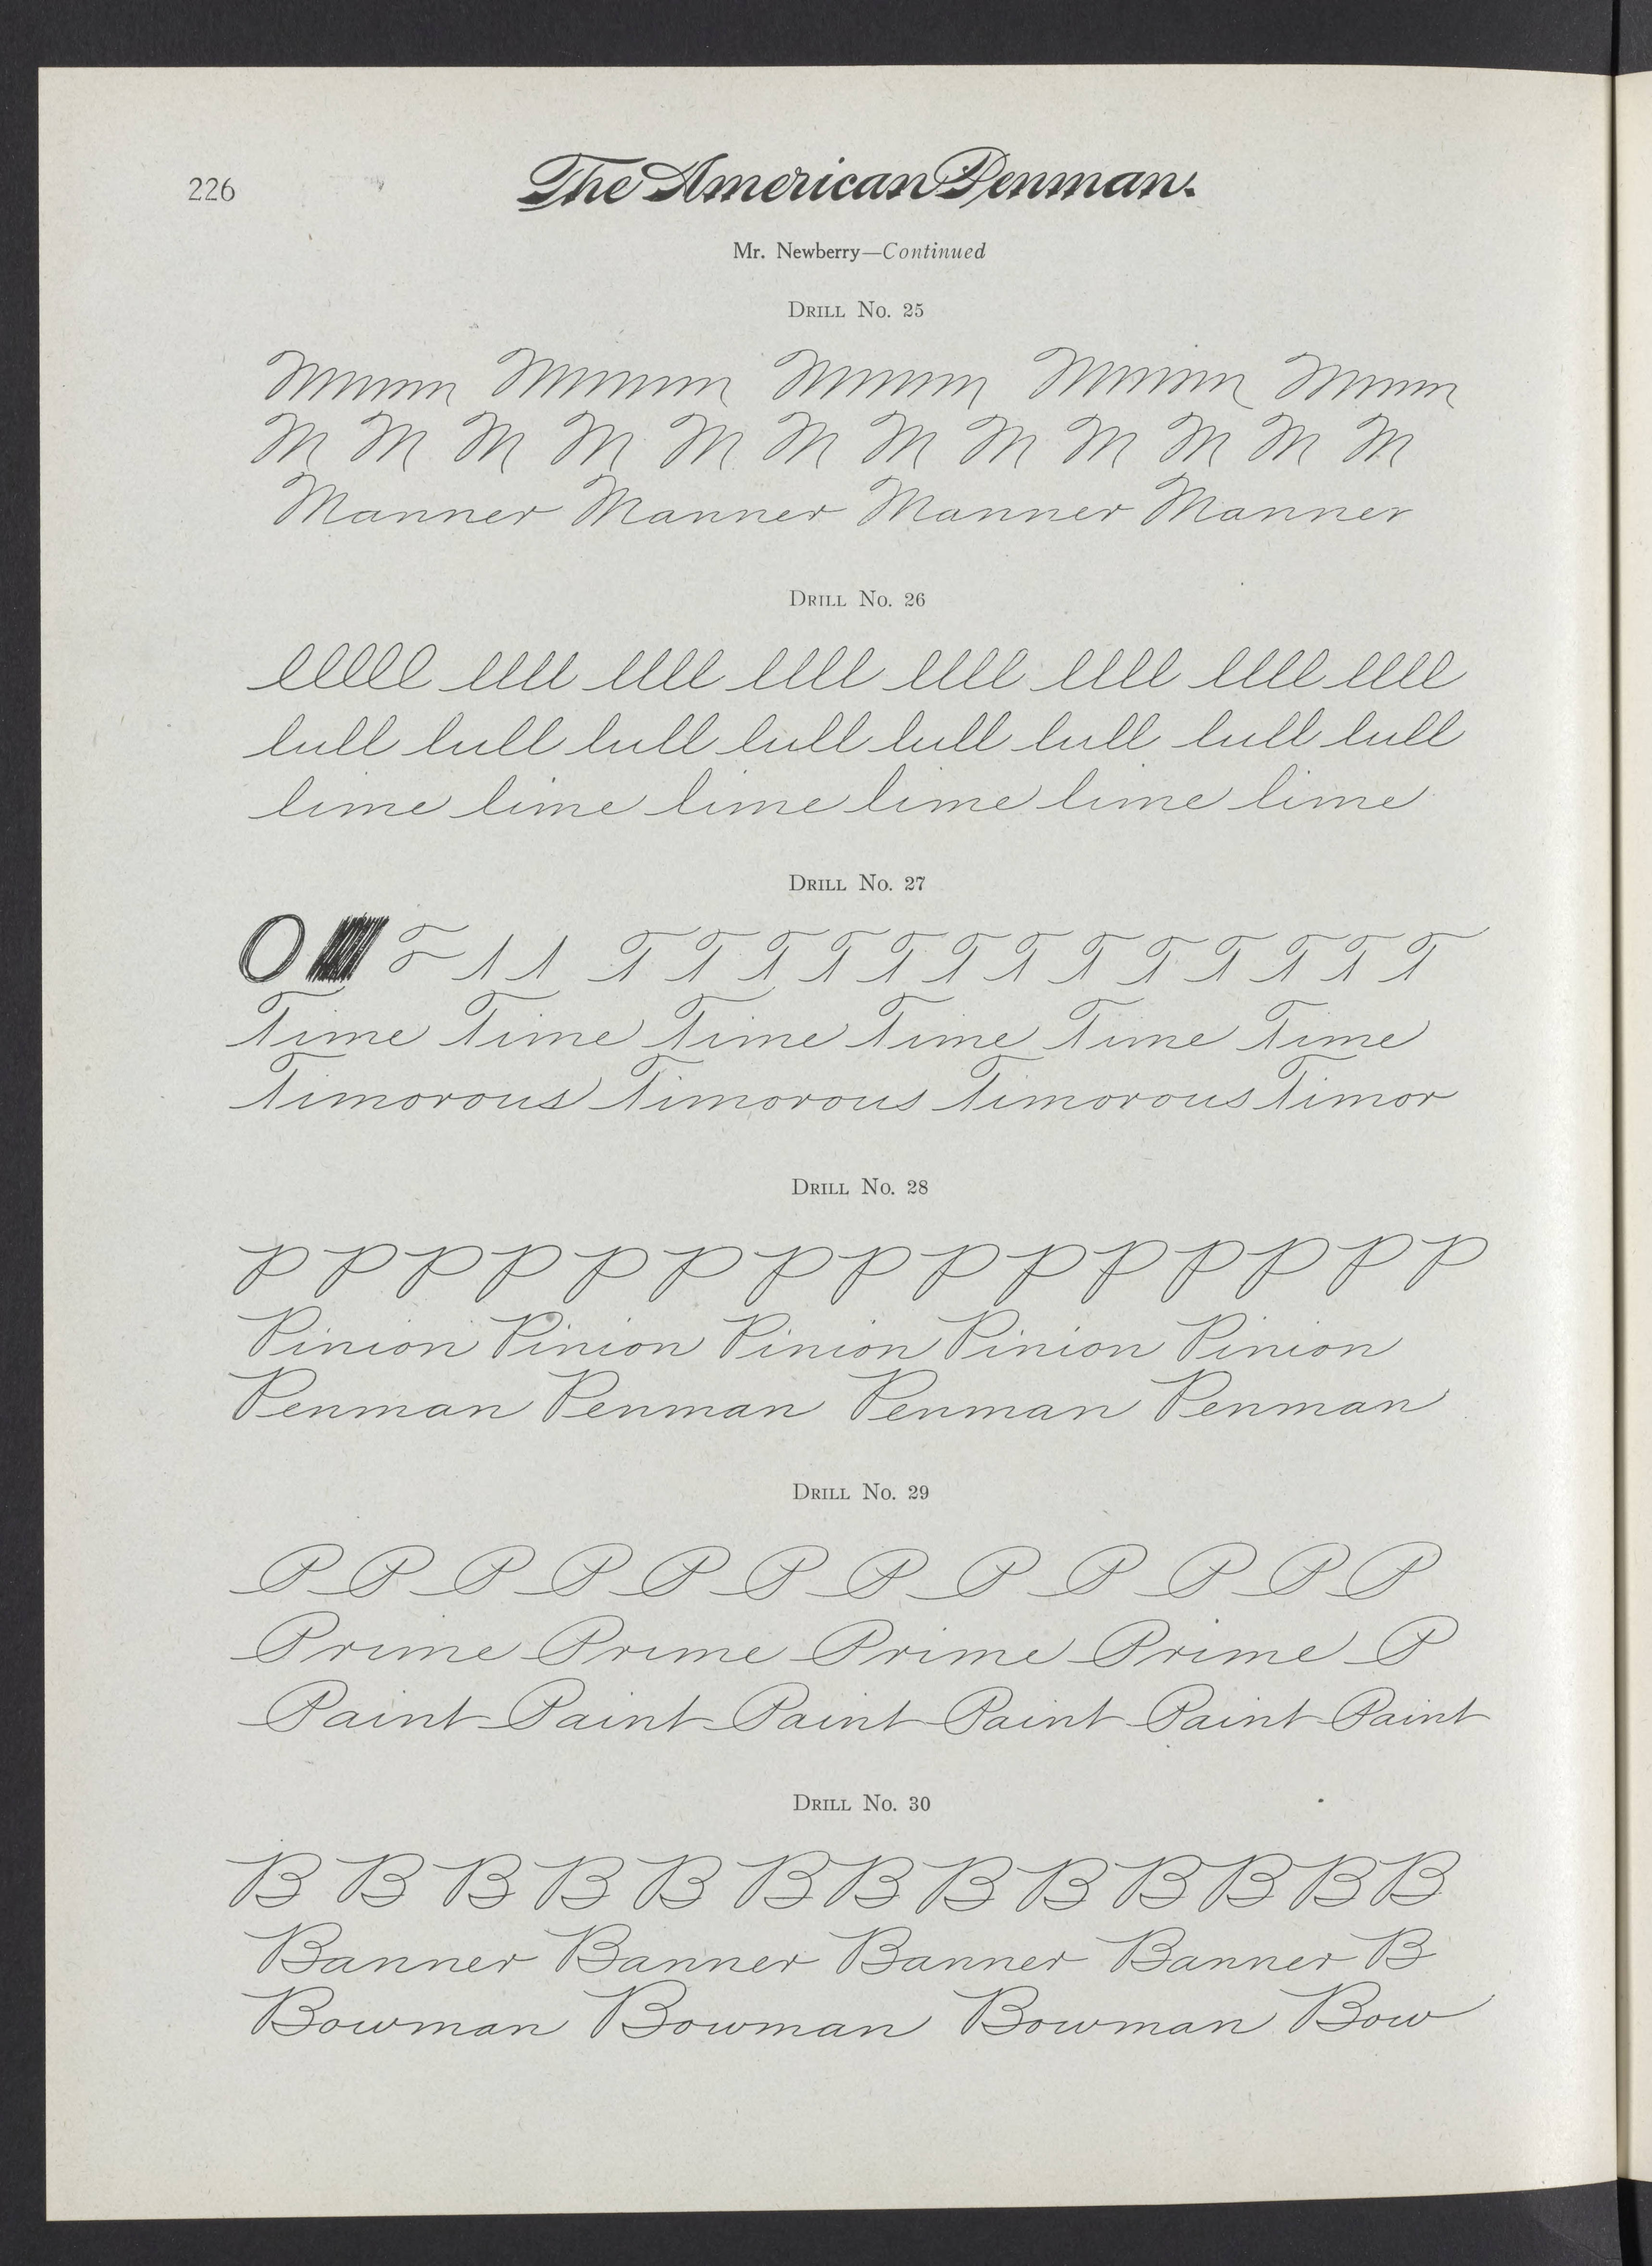 226
The American Penman.
Mr. Newberry—Continued
Drill No. 25
Mmmm Mmmmm Mmmmm Mmmmm Mmmm
M M M M M M M M M M M M
Manner Manner Manner Manner
Drill No. 26
lllll llll llll llll llll llll llll llll
lull lull lull lull lull lull lull lull
lime lime lime lime lime lime
Drill No. 27
O T T T T T T T T T T T T T
Time Time Time Time Time Time
Timorous Timorous Timorous Timor
Drill No. 28
P P P P P P P P P P P P P P P
Pinion Pinion Pinion Pinion Pinion
Penman Penman Penman Penman
Drill No. 29
P P P P P P P P P P P P
Prime Prime Prime Prime P
Paint Paint Paint Paint Paint Paint
Drill No. 30
B B B B B B B B B B B B B
Banner Banner Banner Banner B
Bowman Bowman Bowman Bow